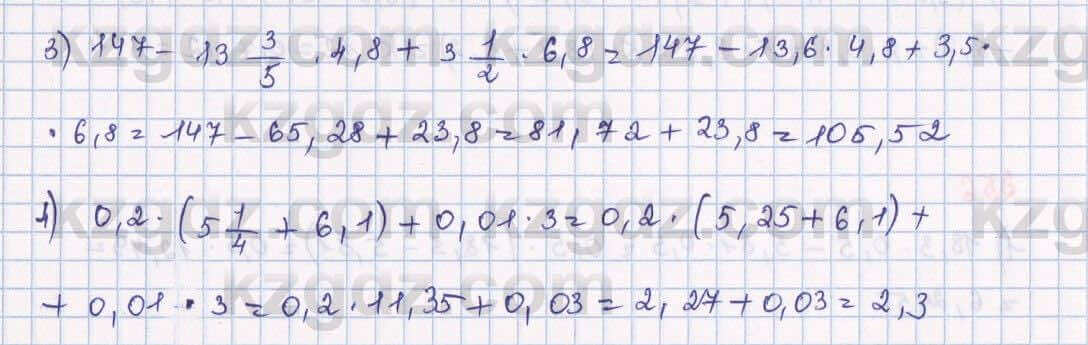 3) 147 - 13 3/5 · 4,8 + 3 1/2 · 6,8 = 147 - 13,6 · 4,8 + 3,5 ·
· 6,8 = 147 - 65,28 + 23,8 = 81,72 + 23,8 = 105,52
1) 0,2 · (5 1/4 + 6,1) + 0,01 · 3 = 0,2 · (5,25 + 6,1) +
+ 0,01 · 3 = 0,2 · 11,35 + 0,03 = 2,27 + 0,03 = 2,3
kzgdz.com